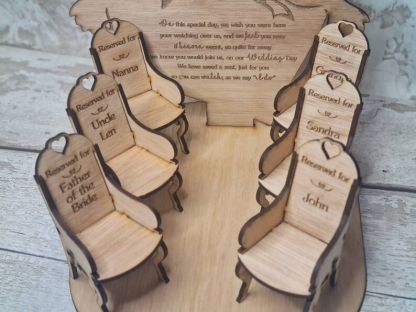 On this special day, we wish you were here
your watching over us, and we feel you near
Heaven meant, so quite far away
know you would join us, on our Wedding Day
We have saved a seat, just for you
so you can watch, as we say "I do"
Reserved for
Nanna
Reserved for
Uncle
Len
Reserved for
Father
of the
Bride
Reserved for
Reserved for
Sandra
Reserved for
John